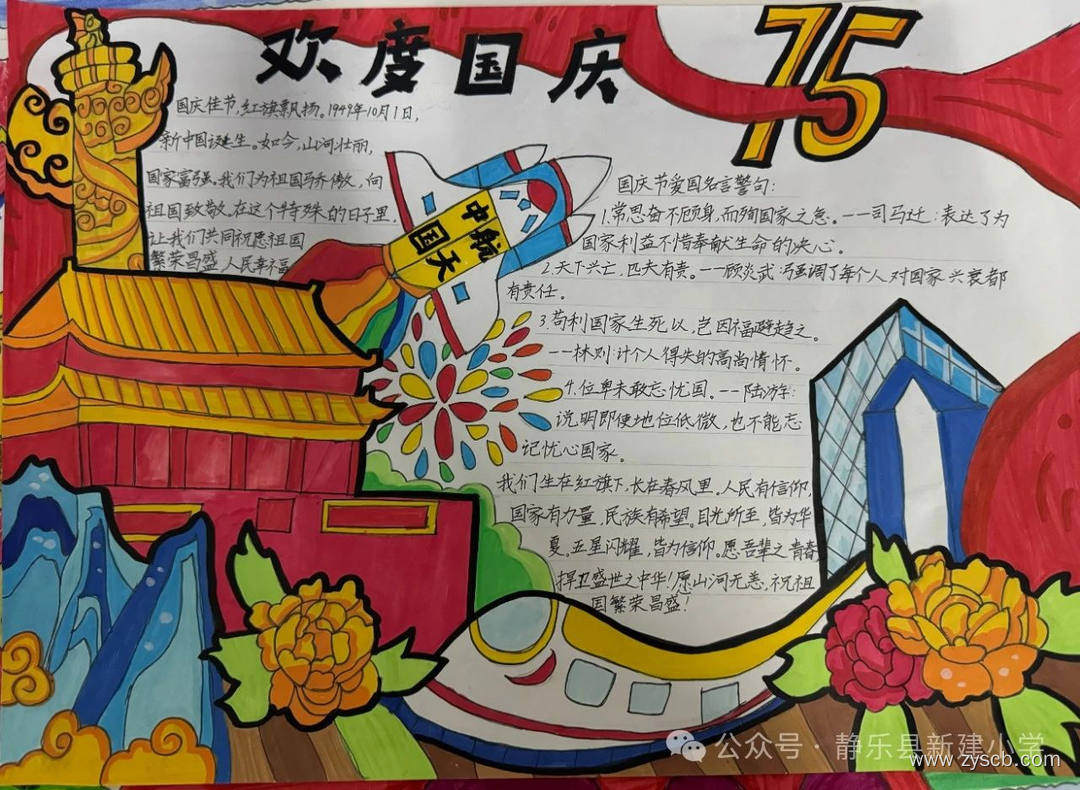 欢度国庆
75
国庆佳节,红旗飘扬。1949年10月1日,
新中国诞生。如今,山河壮丽,
国家富强。我们为祖国骄傲,向
祖国致敬。在这个特殊的日子里,
让我们共同祝愿祖国
繁荣昌盛,人民幸福
中国
航天
国庆节爱国名言警句:
1.常思奋不顾身,而殉国家之急。——司马迁:表达了为
国家利益不惜奉献生命的决心。
2.天下兴亡,匹夫有责。——顾炎武:强调了每个人对国家兴衰都
有责任。
3.苟利国家生死以,岂因福避趋之。
——林则:计个人得失的高尚情怀。
4.位卑未敢忘忧国。——陆游:
说明即便地位低微,也不能忘
记忧心国家。
我们生在红旗下,长在春风里。人民有信仰,
国家有力量,民族有希望。目光所至,皆为华
夏。五星闪耀,皆为信仰。愿吾辈之青春
捍卫盛世之中华!愿山河无恙,祝祖
国繁荣昌盛!
公众号·静乐县新建小学
www.zyscb.com